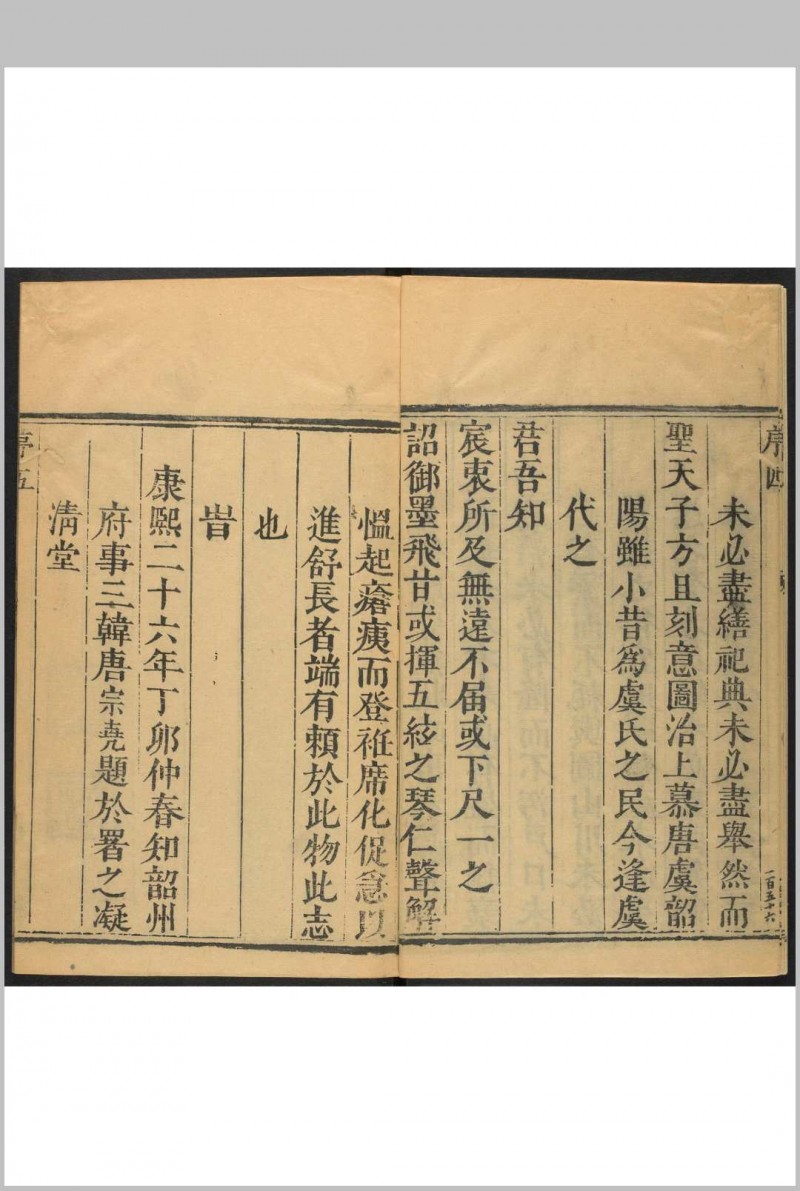 序四
一百五十六
未必盡繕祀典未必盡舉然而
聖天子方且刻意圖治上慕唐虞韶
陽雖小昔爲虞氏之民今逢虞
代之
君吾知
宸衷所及無遠不届或下尺一之
詔御墨飛甘或揮五絃之琴仁聲解
慍起瘡痍而登袵席化促急以
進舒長者端有頼於此物此志
也
旹
康熙二十六年丁卯仲春知韶州
府事三韓唐宗堯題於署之凝
清堂
序五